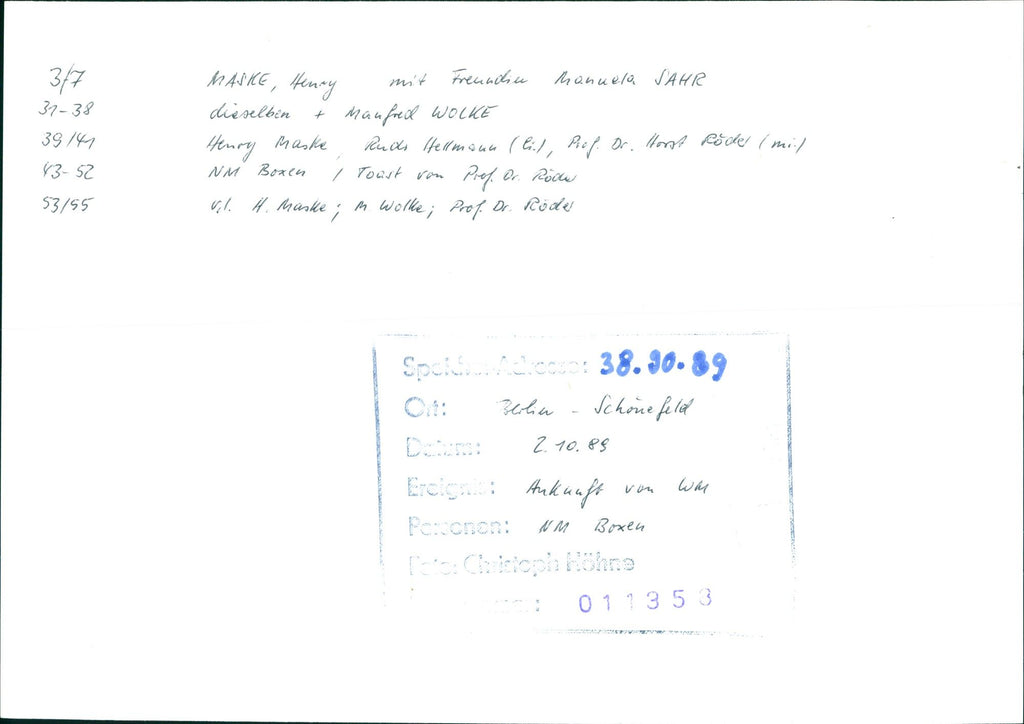 3/7 MASKE, Henry mit Freundin Manuela SAHR
31-38 dieselben + Manfred WOLKE
39/41 Henry Maske, Rudi Hellmann (li.), Prof. Dr. Horst Röder (mi.)
43-52 NM Boxen / Toast von Prof. Dr. Röder
53/55 v.l. H. Maske; M. Wolke; Prof. Dr. Röder
Speicher-Adresse: 38.90.89
Ort: Berlin - Schönefeld
Datum: 2.10.89
Ereignis: Ankunft von WM
Personen: NM Boxen
Foto: Christoph Höhne
011353